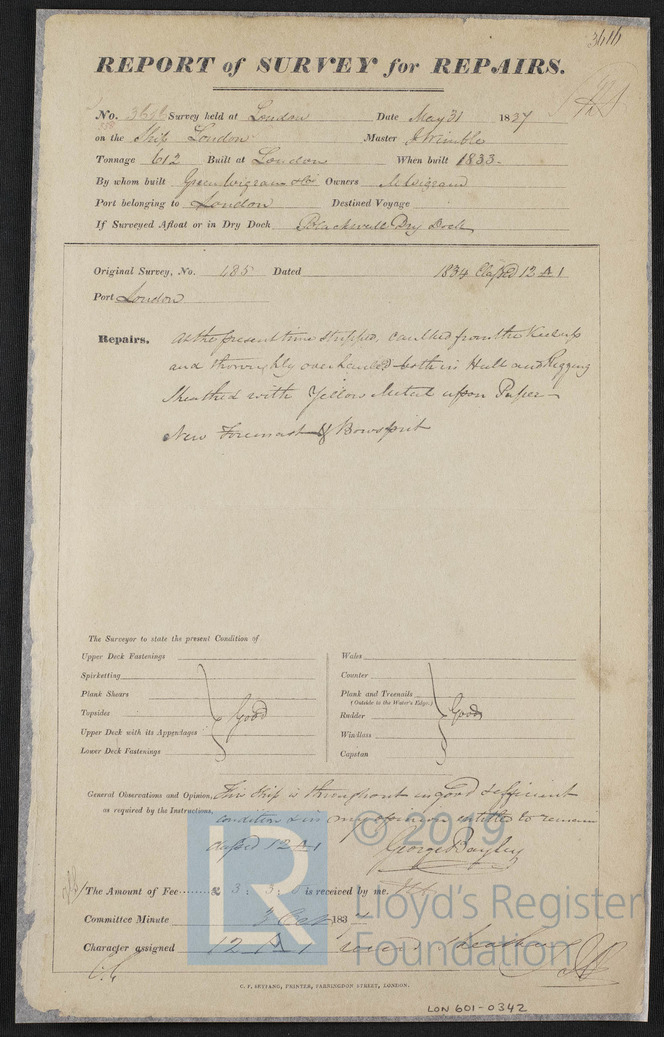 3616
REPORT of SURVEY for REPAIRS.
No. 3616 Survey held at London Date May 31 1837
on the Ship London Master J Wimble
Tonnage 612 Built at London When built 1833.
By whom built Green Wigram &Co Owners M Wigram
Port belonging to London Destined Voyage
If Surveyed Afloat or in Dry Dock Blackwall Dry Dock
Original Survey, No. 485 Dated 1834 Classed 12 A 1
Port London
Repairs. At the present time stripped, caulked from the Keel up
and thoroughly overhauled both in Hull and Rigging
Sheathed with Yellow Metal upon Paper
New Foremast & Bowsprit
The Surveyor to state the present Condition of
Upper Deck Fastenings
Spirketting
Plank Shears
Topsides
Upper Deck with its Appendages
Lower Deck Fastenings
Good
Wales
Counter
Plank and Treenails
(Outside to the Water's Edge.)
Rudder
Windlass
Capstan
Good
General Observations and Opinion, This Ship is throughout in good & efficient
as required by the Instructions, condition & in my opinion entitled to remain
classed 12 A 1 George Bayley
The Amount of Fee £ 3 : 3 : is received by me.
Committee Minute 3 183
Character assigned 12 A 1
C. F. SEYFANG, PRINTER, FARRINGDON STREET, LONDON.
LON 601-0342
© 2019
Lloyd's Register
Foundation
LR